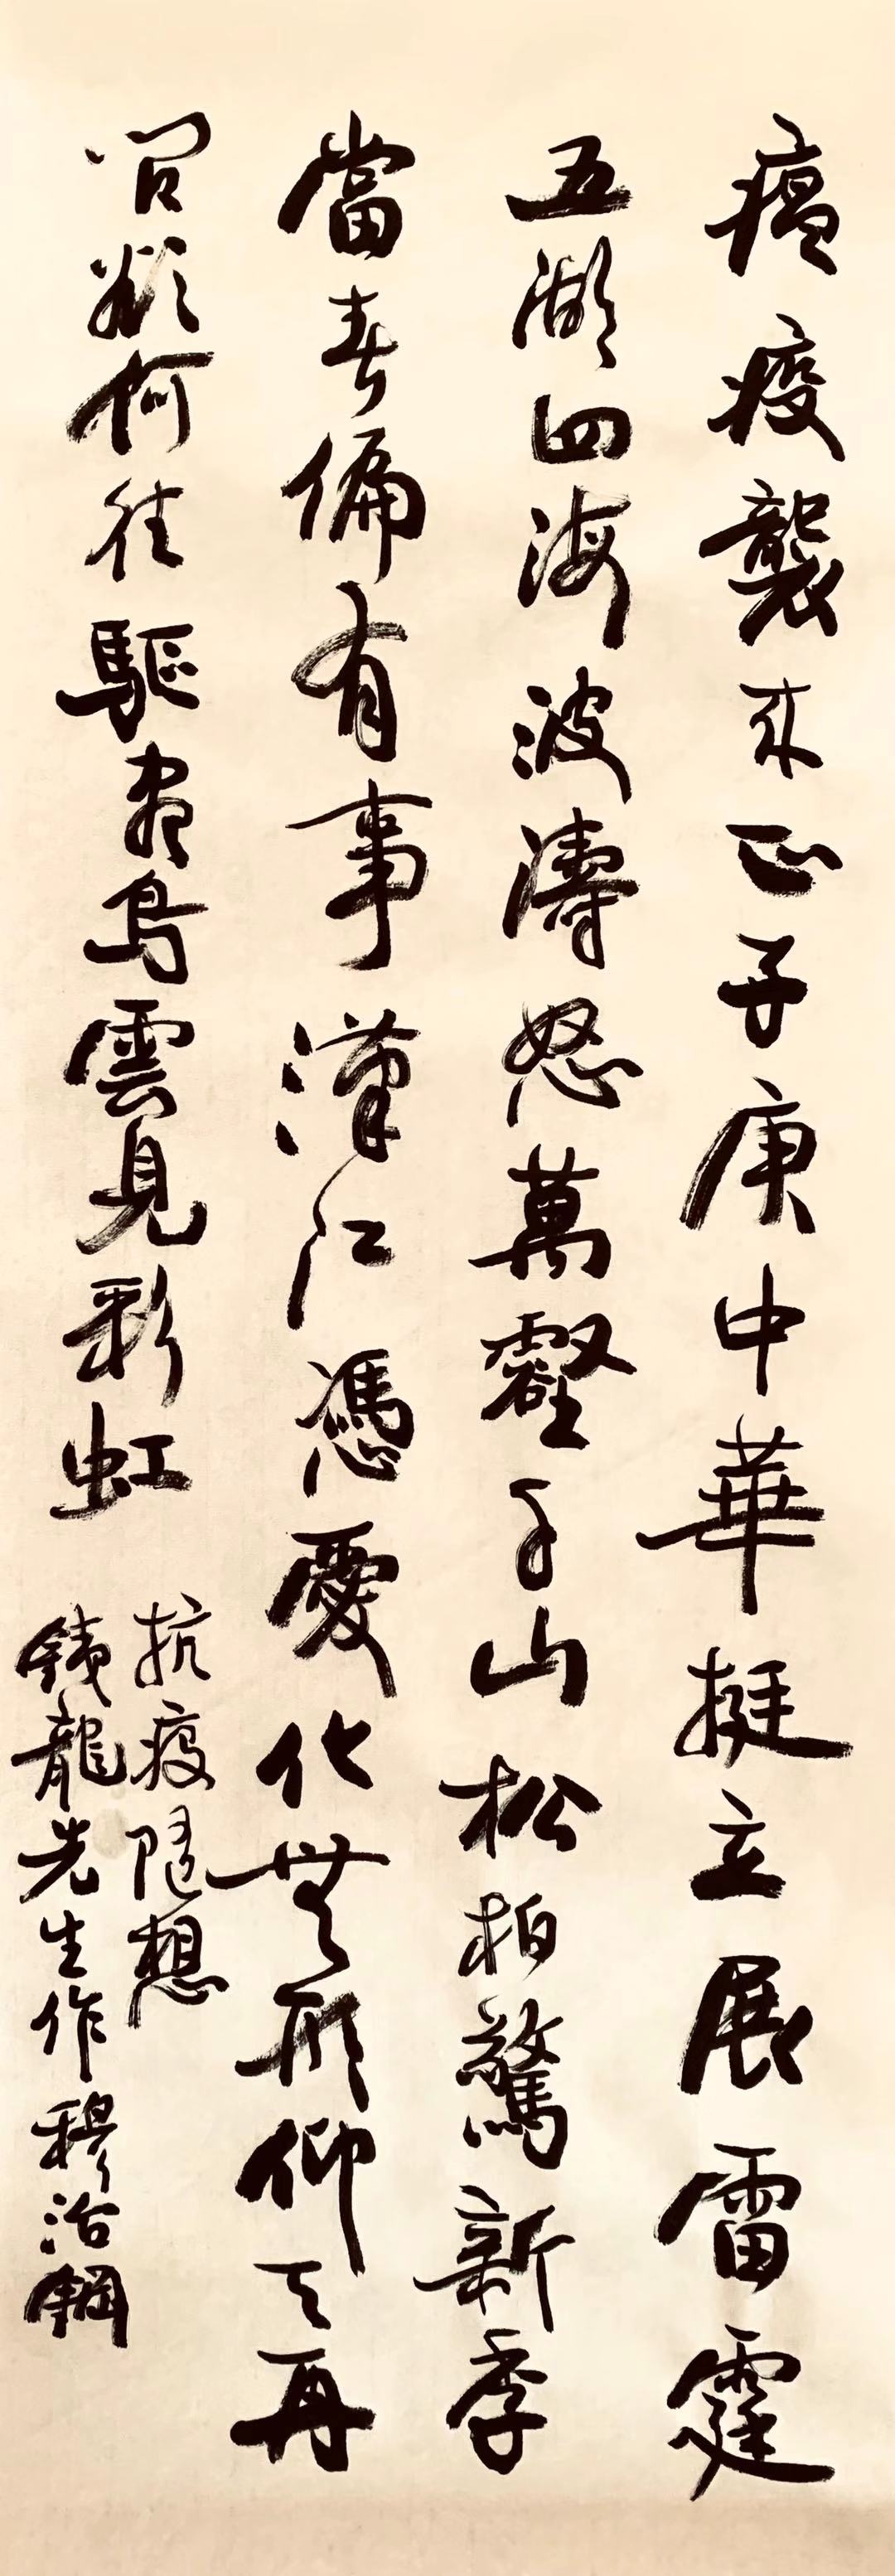 瘟疫襲來正子庚中華挺立展雷霆
五湖四海波濤怒萬壑千山松柏驚新季
當春偏有事漢江憑愛化無形仰天再
問欲何往驅盡烏雲見彩虹
抗疫隨想
銕龍先生作穆治鋼